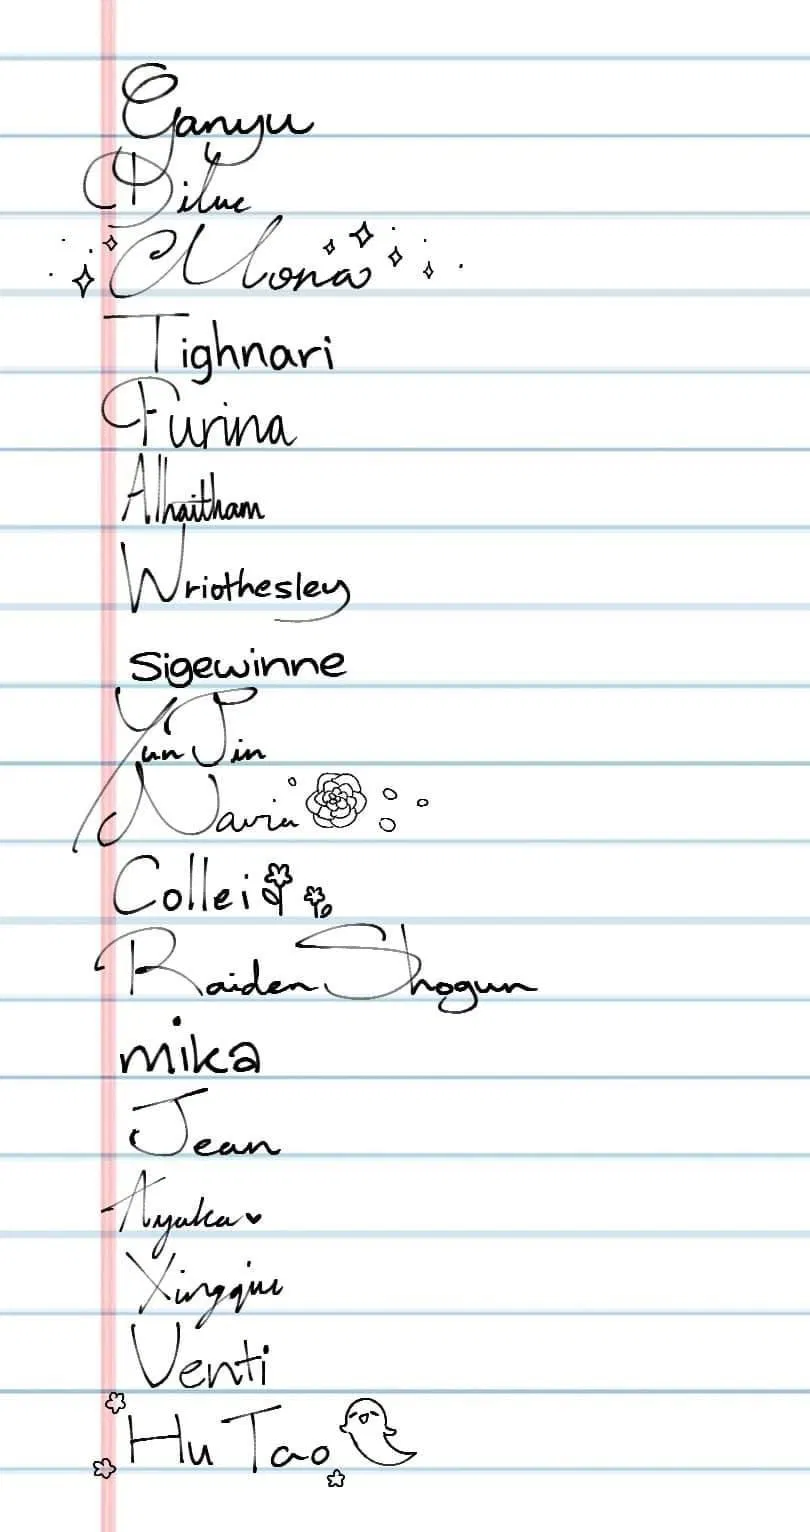 Ganyu
Diluc
Mona
Tighnari
Furina
Alhaitham
Wriothesley
sigewinne
Yun Jin
Navia
Collei
Raiden Shogun
mika
Jean
Ayaka
Xingqiu
Venti
Hu Tao